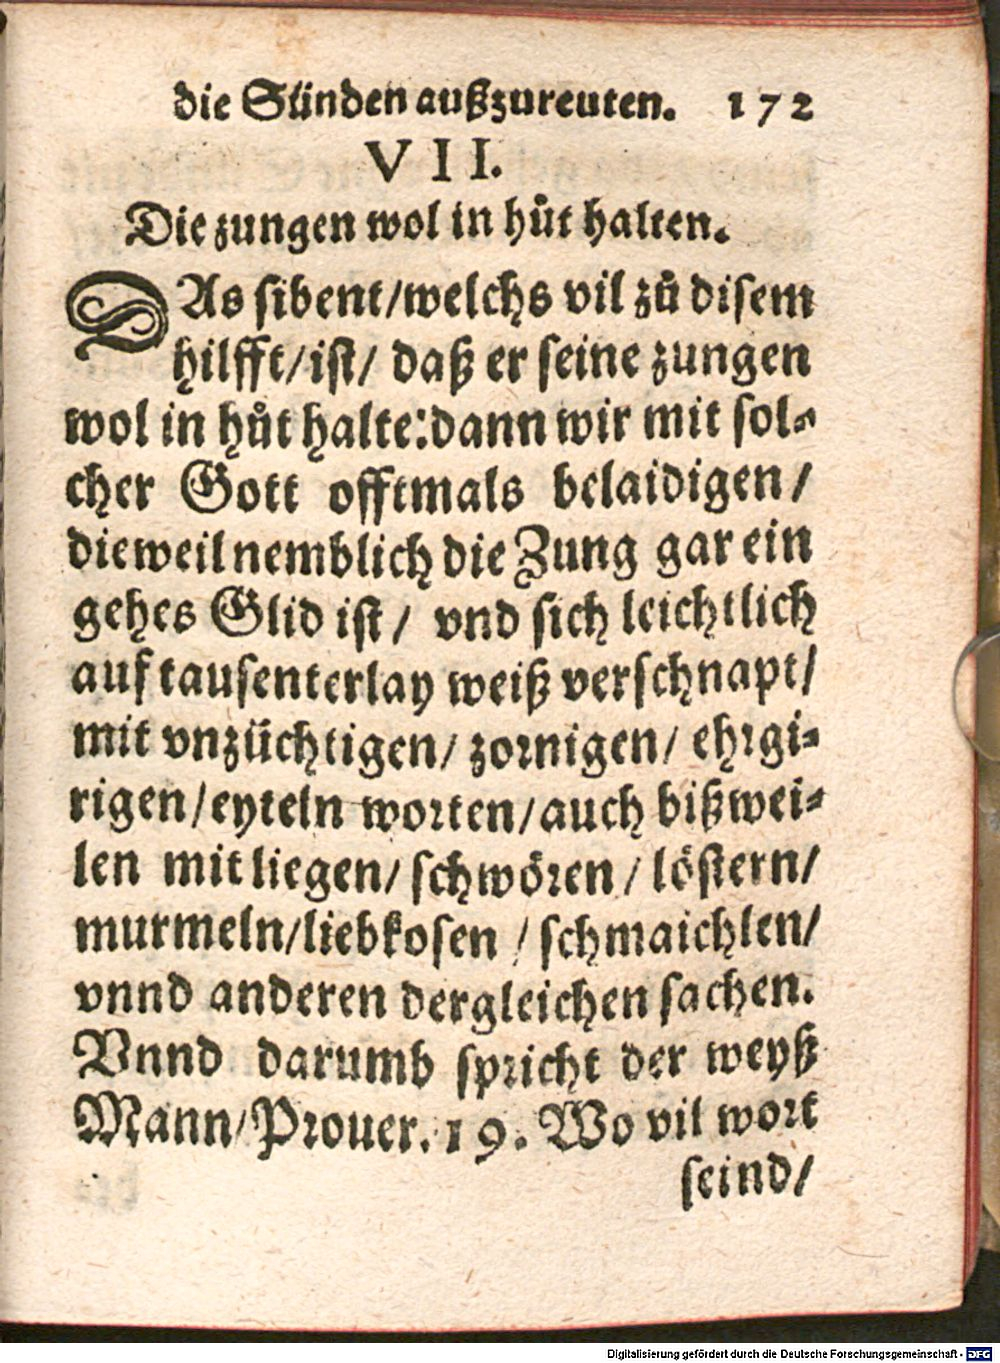 die Sünden außzureuten. 172
VII.
Die zungen wol in hůt halten.
DAs sibent/welchs vil zů disem
hilfft/ist/ daß er seine zungen
wol in hůt halte:dann wir mit sol-
cher Gott offtmals belaidigen/
dieweil nemblich die Zung gar ein
gehes Glid ist/ vnd sich leichtlich
auf tausenterlay weiß verschnapt/
mit vnzüchtigen/ zornigen/ ehrgi-
rigen/eyteln worten/auch bißwei-
len mit liegen/ schwören/ löstern/
murmeln/liebkosen/ schmaichlen/
vnnd anderen dergleichen sachen.
Vnnd darumb spricht der weyß
Mann/Prouer. 19. Wo vil wort
seind/
Digitalisierung gefördert durch die Deutsche Forschungsgemeinschaft - DFG